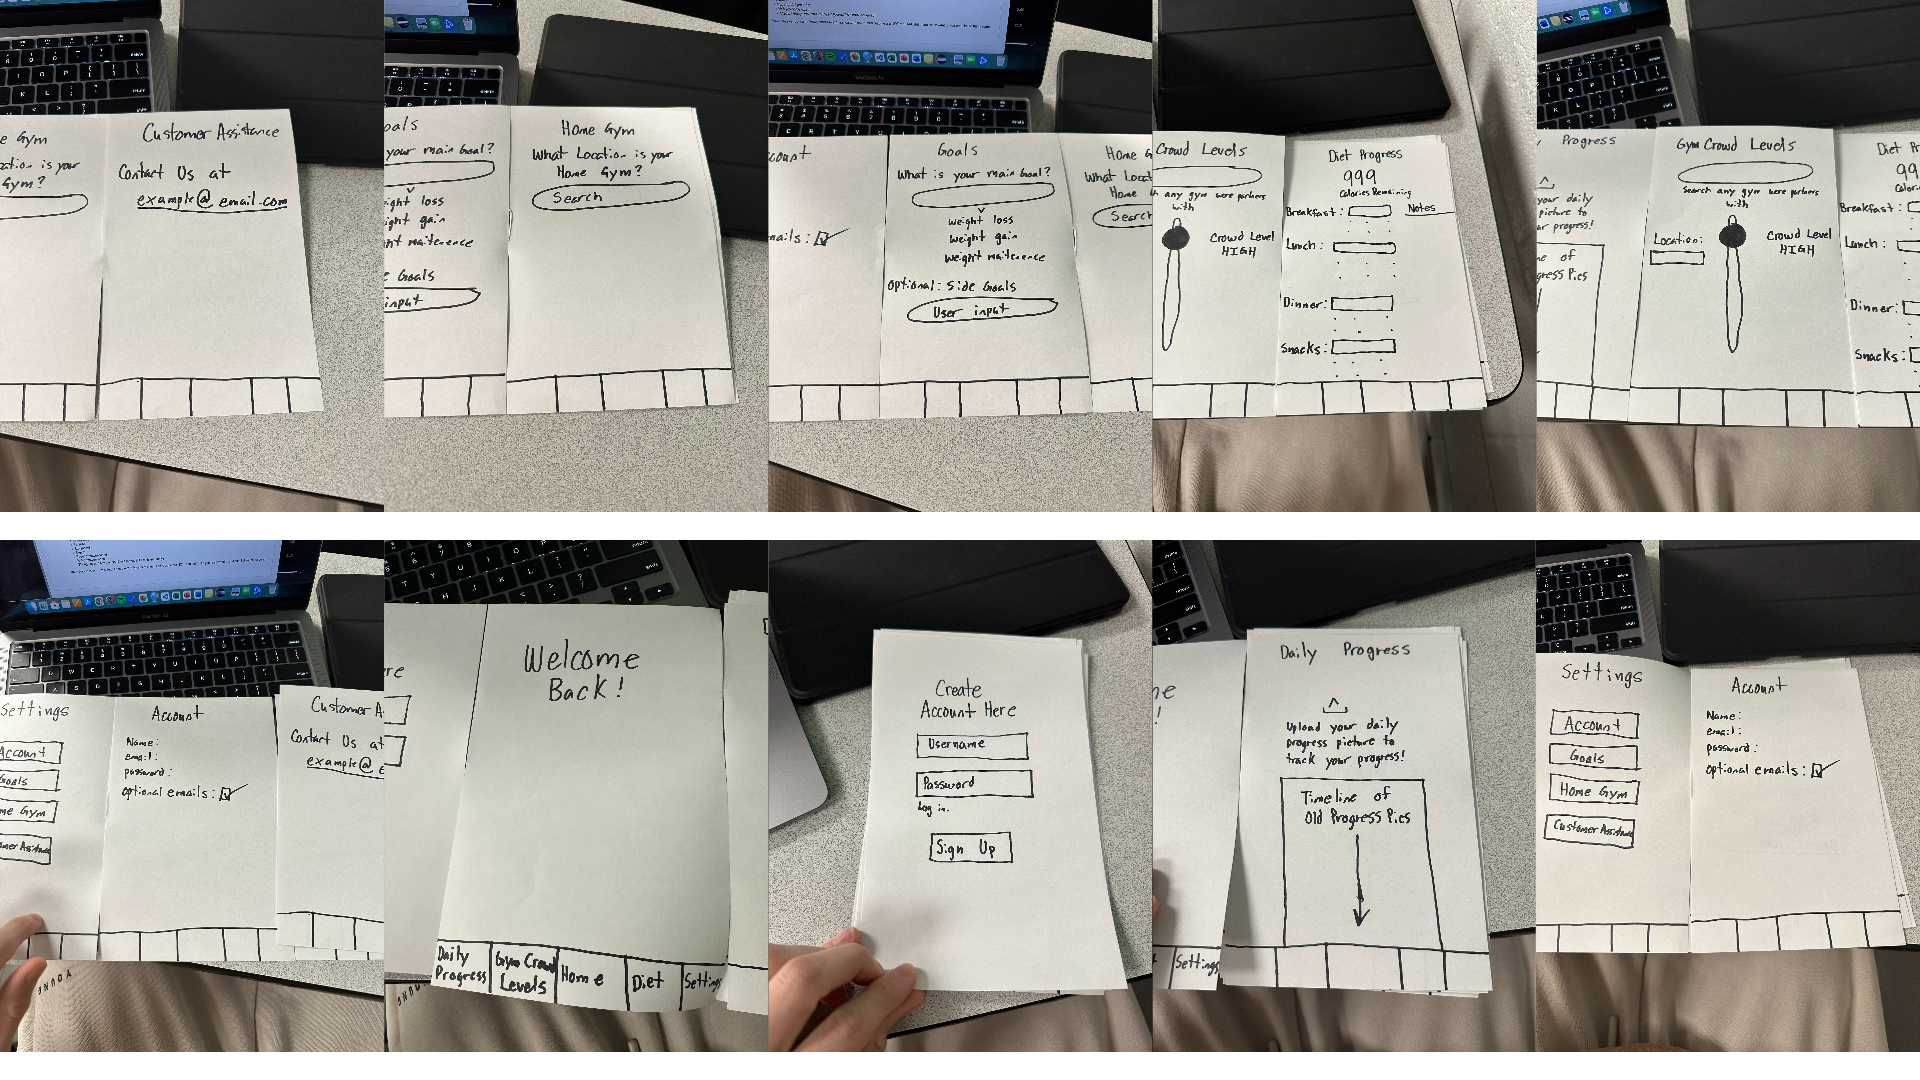 e Gym
cation is your
Gym?
Customer Assistance
Contact Us at
example@email.com
oals
your main Goal?
ight loss
ight gain
ht maitenence
e Goals
input
Home Gym
What Location is your
Home Gym?
Search
count
mails:
Goals
What is your main Goal?
weight loss
weight gain
weight maitenence
Optional: Side Goals
User input
Home G
What Locat
Home
Search
Crowd Levels
h any gym were partners
with
Crowd Level
HIGH
Diet Progress
999
Calories Remaining
Breakfast:
Notes
Lunch:
Dinner:
Snacks:
Progress
your daily
picture to
ur progress!
ne of
gress Pics
Gym Crowd Levels
Search any gym were partners
with
Location:
Crowd Level
HIGH
Diet Pr
99
Calor
Breakfast:
Lunch:
Dinner:
Snacks:
Settings
Account
Goals
me Gym
mer Assistance
Account
Name:
email:
password:
Optional emails:
Customer A
Contact Us at
example@e
ere
Welcome
Back!
Daily
Progress
Gym Crowd
Levels
Home
Diet
Settings
Create
Account Here
Username
Password
Log in.
Sign Up
me
!
Settings
Daily Progress
Upload your daily
progress picture to
track your progress!
Timeline of
Old Progress Pics
Settings
Account
Goals
Home Gym
Customer Assistance
Account
Name:
email:
password:
Optional emails: